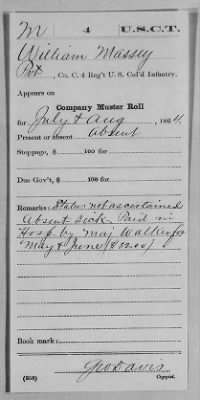 M 4 U.S.C.T.
William Massey
Pvt, Co. C, 4 Reg't U. S. Col'd Infantry.
Appears on
Company Muster Roll
for July & Aug, 1864.
Present or absent Absent
Stoppage, $ 100 for
Due Gov't, $ 100 for
Remarks: Status not ascertained
Absent sick. Paid in
Hosp. by Maj Walker for
May & June ($32.00)
Book mark:
Geo Davis
(358) Copyist.